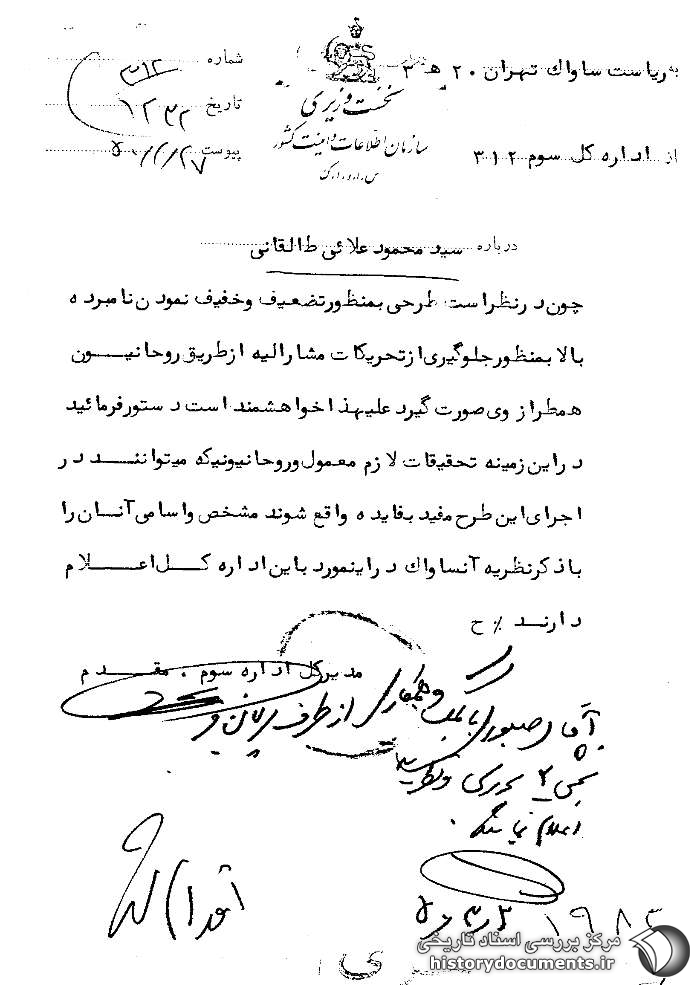 به ریاست ساواک تهران ۲۰ هـ ۳
از اداره کل سوم ۳۱۲
نخست وزیری
سازمان اطلاعات و امنیت کشور
س.ا.و.ا.ک
شماره
تاریخ
پیوست
درباره سید محمود علائی طالقانی
چون در نظر است طرحی بمنظور تضعیف و خفیف نمودن نامبرده
بالا بمنظور جلوگیری از تحریکات مشارالیه از طریق روحانیون
همطراز وی صورت گیرد علیهذا خواهشمند است دستور فرمائید
در این زمینه تحقیقات لازم معمول و روحانیونیکه میتوانند در
اجرای این طرح مفید بفایده واقع شوند مشخص و اسامی آنان را
با ذکر نظریه آنساواک در اینمورد باین اداره کل اعلام
دارند ٪ ح
مدیر کل اداره سوم . مقدم
آقای صبوری با کمک و همکاری از طرف
اعلام نمایند .
مرکز بررسی اسناد تاریخی
historydocuments.ir